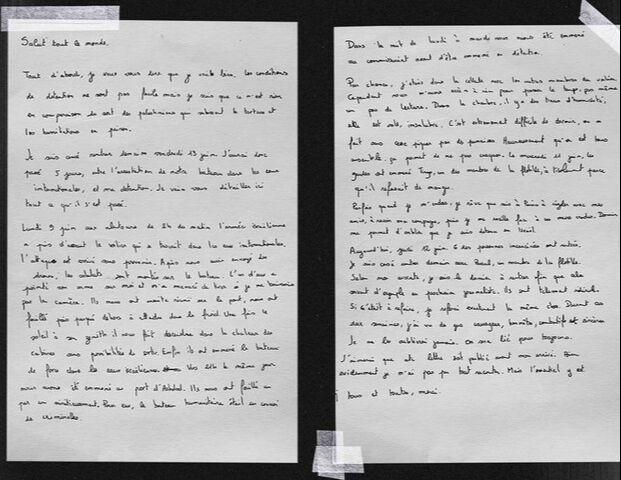 Salut tout le monde,
Tout d'abord, je veux vous dire que je vais bien, les conditions
de détention ne sont pas facile mais je sais que ce n'est rien
en comparaison du sort des palestiniens qui subissent la torture et
les humiliations en prison.
Je suis censé rentrer demain vendredi 13 juin. J'aurai donc
passé 5 jours, entre l'arrestation de notre bateau dans les eaux
internationales, et ma détention. Je vais vous détailler ici
tout ce qu'il s'est passé.
Lundi 9 juin aux alentours de 2h du matin l'armée israélienne
a pris d'assaut le voilier qui se trouvait dans les eaux internationales.
L'attaque est arrivé sans prévenir. Après nous avoir envoyé des
drones, les soldats sont montés sur le bateau. L'un d'eux a
pointé son arme sur moi et m'a menacé de tirer si je ne bougeais
pas la caméra. Ils nous ont ensuite réuni sur le pont, nous ont
fouillé puis parqué dehors à attendre dans le froid. Une fois le
soleil à son zénith il nous fait descendre dans la chaleur des
cabines sans possibilités de sortir. Enfin ils ont emmené le bateau
de force dans les eaux israéliennes. Vers 21h le même jour
nous avons été emmené au port d'Ashdod. Ils nous ont fouillé un
par un minutieusement. Pour eux, le bateau humanitaire était un convoi
de criminelles.
Dans la nuit de lundi à mardi nous avons été emmené
au commissariat avant d'être emmené en détention.
Par chance, j'étais dans la cellule avec les autres membres du voilier.
Cependant nous n'avons rien à rien pour passer le temps, pas même
un peu de lecture. Dans la chambre, il y a des traces d'humidité,
elle est sale, insalubre. C'est extrêmement difficile de dormir, on se
fait sans cesse piquer par des punaises. Heureusement qu'on est tous
ensemble, ça permet de ne pas craquer. Le mercredi 11 juin, les
gardes ont emmené Thiago, un des membres de la flotille, à l'isolement parce
qu'il refusait de manger.
Parfois quand je m'endors, je rêve que suis à Paris à rigoler avec mes
amis, à revoir ma compagne, puis je me réveille face à un mur rendu. Dormir
me permet d'oublier que je suis détenu en Israël.
Aujourd'hui, jeudi 12 juin 6 des personnes incarcérées ont rentrés.
Je suis censé rentrer demain avec Pascal, un membre de la flotille.
Selon nos avocats, je suis le dernier à rentrer afin que cela
servent d'exemple au prochain journaliste. Ils sont tellement ridicules.
Si c'était à refaire, je referai exactement la même chose. Durant ces
deux semaines, j'ai vu de gens courageux, honnêtes, combatifs et sincères
Je ne les oublierai jamais. On sera lié pour toujours.
J'aimerai que cette lettre soit publié avant mon arrivée. Bien
évidemment je n'ai pas pu tout raconter. Mais l'essentiel y est
à tous et toutes, merci.